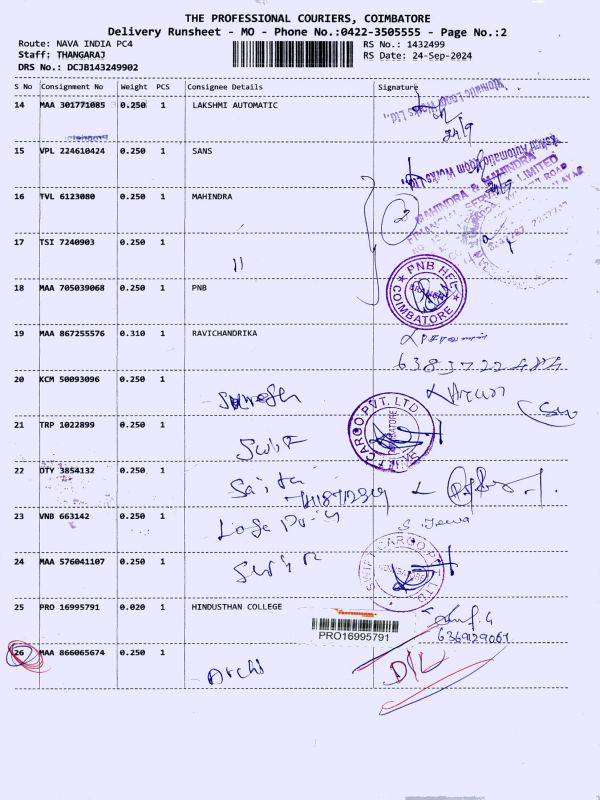 THE PROFESSIONAL COURIERS, COIMBATORE
Delivery Runsheet - MO - Phone No.:0422-3505555 - Page No.:2
Route: NAVA INDIA PC4
RS No.: 1432499
Staff: THANGARAJ
RS Date: 24-Sep-2024
DRS No.: DCJB143249902
S No Consignment No Weight PCS Consignee Details Signature
14 MAA 301771085 0.250 1 LAKSHMI AUTOMATIC
24/9
15 VPL 224610424 0.250 1 SANS
MAHINDRA & MAHINDRA
FINANCIAL SERVICES LIMITED
16 TVL 6123080 0.250 1 MAHINDRA
2
17 TSI 7240903 0.250 1
"
18 MAA 705039068 0.250 1 PNB
PNB HFL
COIMBATORE
19 MAA 867255576 0.310 1 RAVICHANDRIKA
638 37 22 484
20 KCM 50093096 0.250 1 Suresh
21 TRP 1022899 0.250 1 Swift
SWIFT CARGO PVT. LTD
COIMBATORE
22 DTY 3854132 0.250 1
23 VNB 663142 0.250 1
24 MAA 576041107 0.250 1
SWIFT CARGO PVT. LTD
COIMBATORE
25 PRO 16995791 0.020 1 HINDUSTHAN COLLEGE
PRO16995791
6369129061
26 MAA 866065674 0.250 1 Archi
D/L